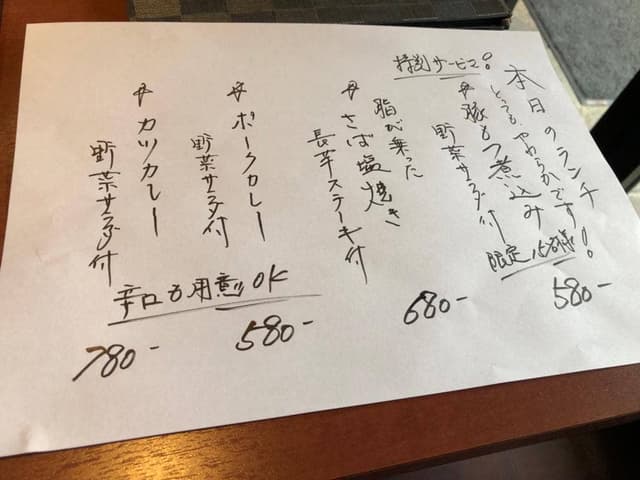 本日のランチ
特別サービス!
とってもやわらかです!
☆豚もつ煮込み
野菜サラダ付
580-
脂が乗った
☆さば塩焼き
長芋ステーキ付
680-
☆ポークカレー
野菜サラダ付
580-
☆カツカレー
野菜サラダ付
辛口も用意OK
780-